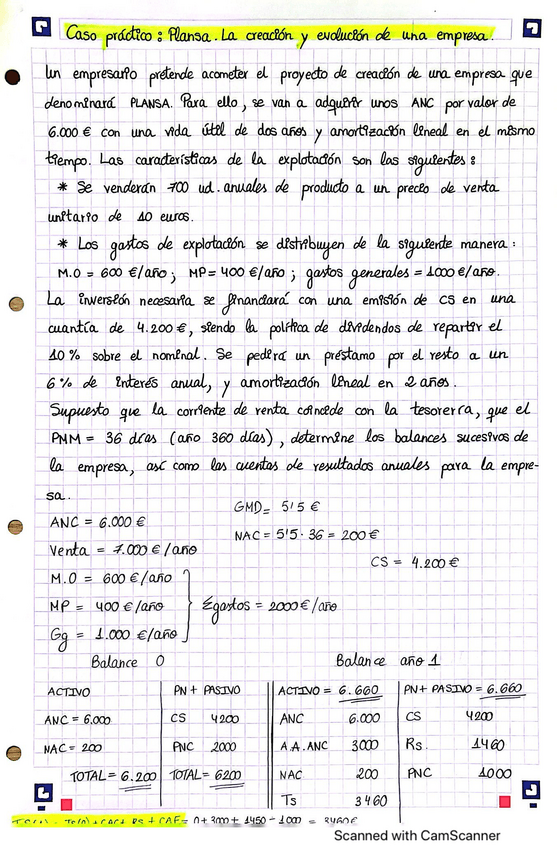 Caso práctico: Plansa. La creación y evolución de una empresa.
Un empresario pretende acometer el proyecto de creación de una empresa que
denominará PLANSA. Para ello, se van a adquirir unos ANC por valor de
6.000 € con una vida útil de dos años y amortización lineal en el mismo
tiempo. Las características de la explotación son las siguientes:
* Se venderán 700 ud. anuales de producto a un precio de venta
unitario de 10 euros.
* Los gastos de explotación se distribuyen de la siguiente manera:
M.O = 600 €/año; MP = 400 €/año; gastos generales = 1000 €/año.
La inversión necesaria se financiará con una emisión de CS en una
cuantía de 4.200 €, siendo la política de dividendos de repartir el
10% sobre el nominal. Se pedirá un préstamo por el resto a un
6% de interés anual, y amortización lineal en 2 años.
Supuesto que la corriente de renta coincide con la tesorería, que el
PMM = 36 días (año 360 días), determine los balances sucesivos de
la empresa, así como las cuentas de resultados anuales para la empre-
sa.
GMD = 5'5 €
ANC = 6.000 €
NAC = 5'5 · 36 = 200 €
Venta = 7.000 €/año
CS = 4.200 €
M.O = 600 €/año
MP = 400 €/año
Σgastos = 2000 €/año
Gg = 1.000 €/año
Balance 0
Balance año 1
ACTIVO PN + PASIVO ACTIVO = 6.660 PN + PASIVO = 6.660
ANC = 6.000 CS 4200 ANC 6.000 CS 4200
NAC = 200 PNC 2000 A.A.ANC 3000 Rs. 1460
TOTAL = 6.200 TOTAL = 6200 NAC 200 PNC 1000
Ts 3460
= 0 + 3000 + 1450 - 1000 = 3460 €
Scanned with CamScanner